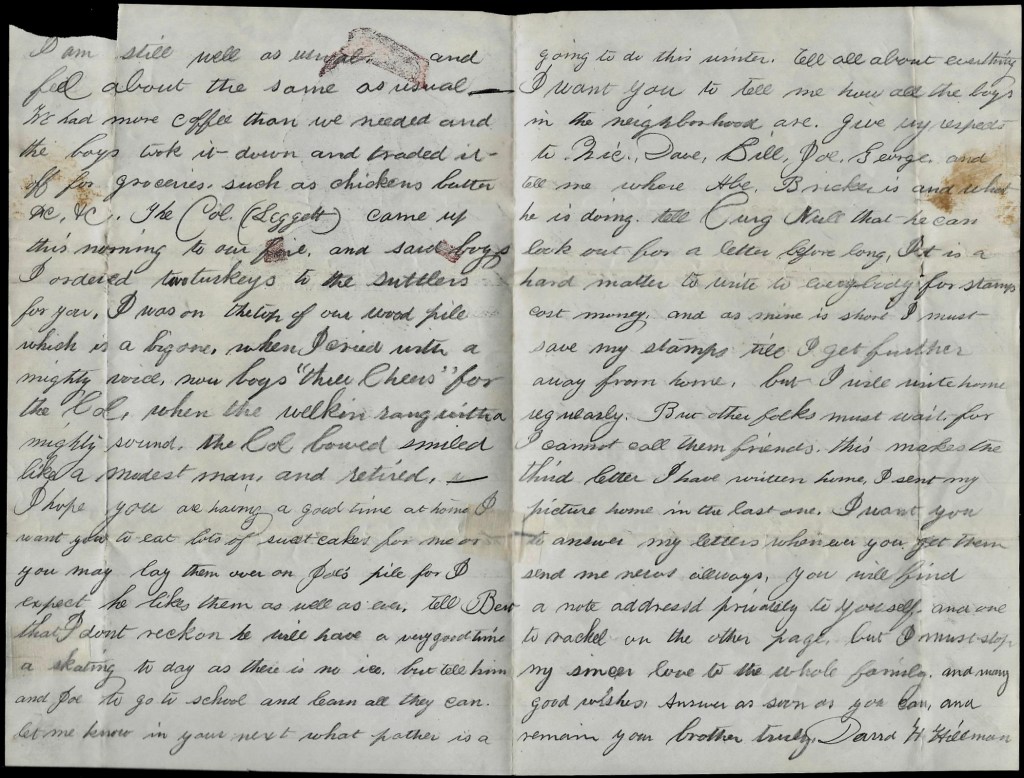 I am still well as usual and
feel about the same as usual —
We had more coffee than we needed and
the boys took it down and traded it
off for groceries. such as chickens butter
&c, &c. The Col. (Leggett) came up
this morning to our line, and said boys
I ordered two turkeys to the suttlers
for you, I was on the top of our wood pile
which is a big one, when I cried with a
mighty voice, now boys "three Cheers" for
the Col, when the welkin rang with a
mighty sound. the Col bowed smiled
like a modest man, and retired. —
I hope you are having a good time at home I
want you to eat lots of sweet cakes for me or
you may lay them over on Joe's pile for I
expect he likes them as well as ever, tell Ben
that I dont reckon he will have a very good time
a skating to day as there is no ice. but tell him
and Joe to go to school and learn all they can.
let me know in your next what father is a
going to do this winter. tell all about everything
I want you to tell me how all the boys
in the neighborhood are. give my respects
to Dave, Bill, Joe. George. and
tell me where Abe. Bricker is and what
he is doing. tell Curg Null that he can
look out for a letter before long, It is a
hard matter to write to everybody for stamps
cost money, and as mine is short I must
save my stamps till I get further
away from home, but I will write home
regularly. But other folks must wait for
I cannot call them friends. this makes the
third letter I have written home, I sent my
picture home in the last one. I want you
to answer my letters whenever you get them
send me news allways, you will find
a note address'd privately to yourself and one
to rachel on the other page, but I must stop
my sincer love to the whole family. and many
good wishes, answer as soon as you can, and
remain your brother truly, David H Hillman